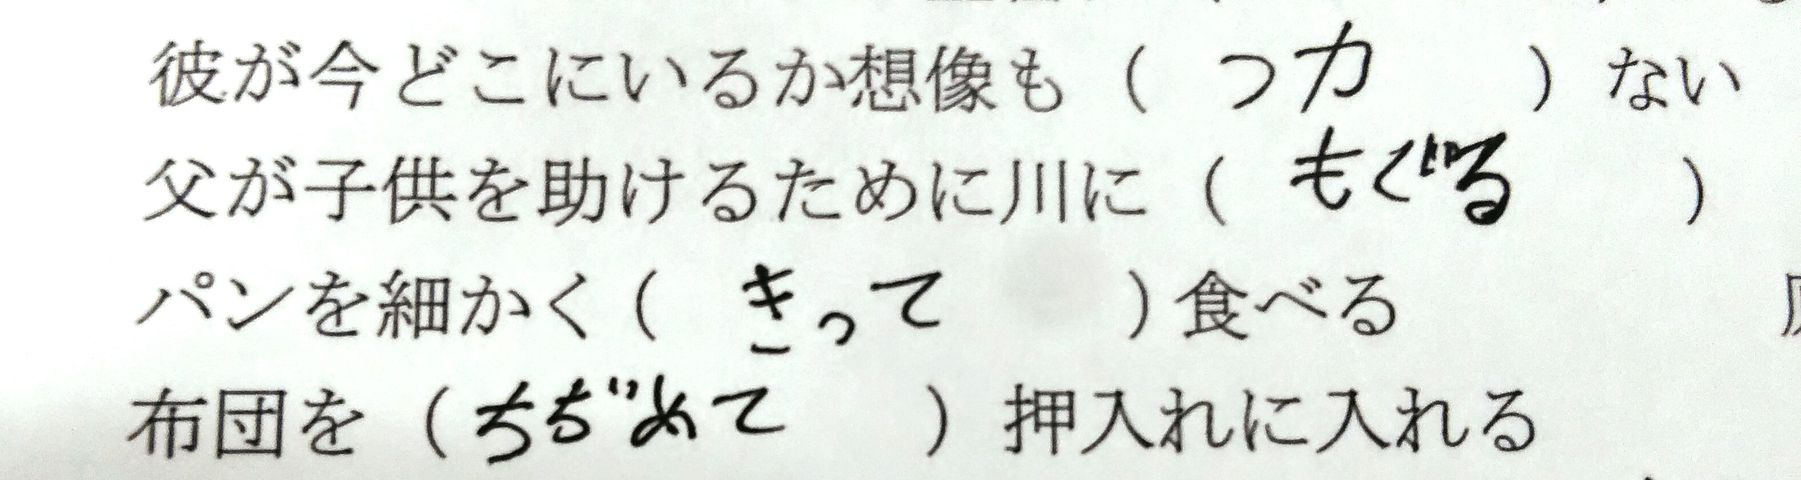 彼が今どこにいるか想像も（ つカ ）ない
父が子供を助けるために川に（ もぐる ）
パンを細かく（ きって ）食べる
布団を（ ちぢめて ）押入れに入れる